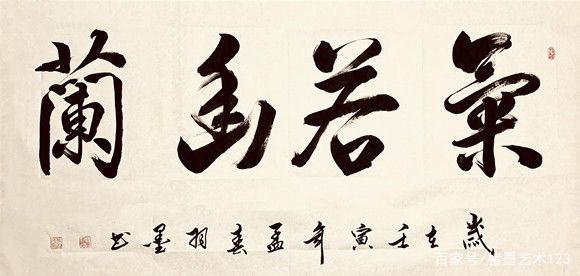 氣若幽蘭
歲在壬寅年孟春墨书
百家号/墨艺术123